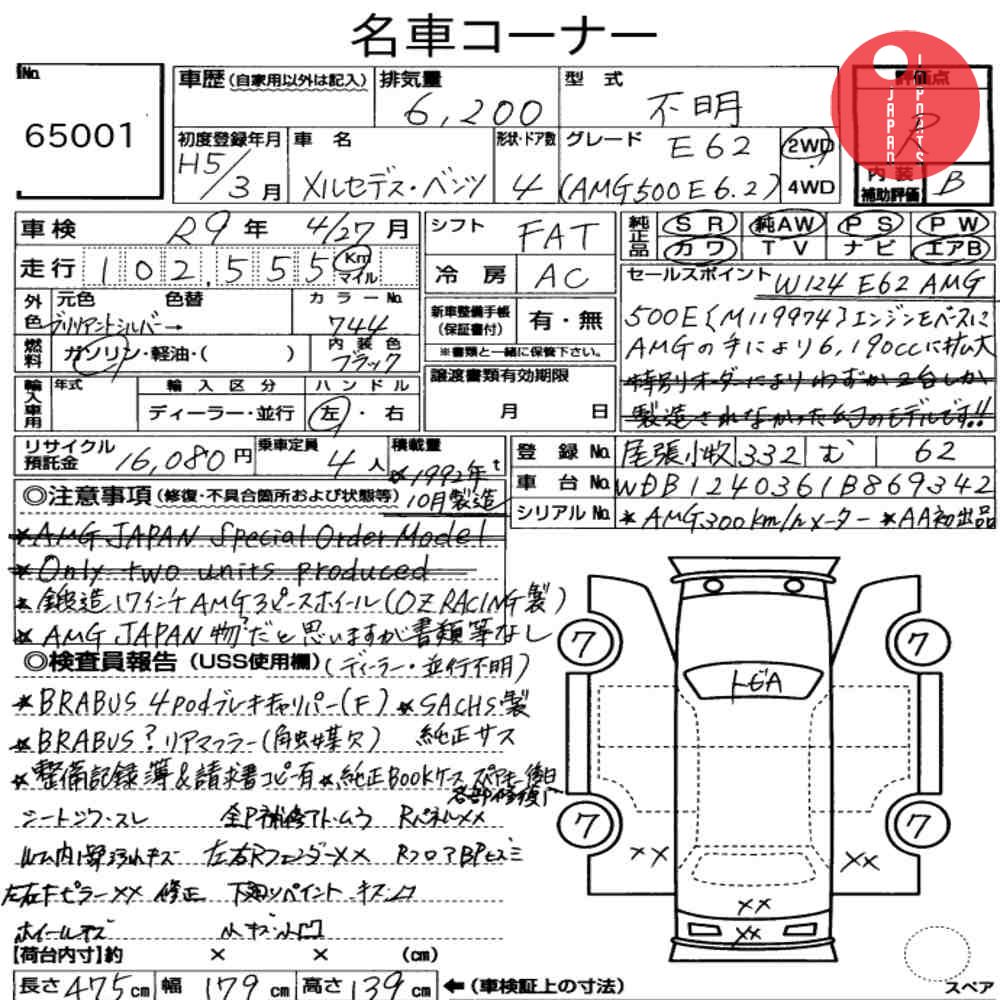 名車コーナー
No.
65001
車歴(自家用以外は記入)
排気量
6,200
型 式
不明
評価点
R
JAPAN
IMPORTS
初度登録年月
H5/3月
車 名
メルセデス・ベンツ
形状・ドア数
4
グレード
E62
(AMG500E6.2)
2WD
・
4WD
内 装
補助評価
B
車検
R9年 4/27月
走行
102,555
Km
マイル
シフト
FAT
冷 房
AC
純正品
SR 純AW PS PW
カワ TV ナビ エアB
外色
元色 色替
ブリリアントシルバー→
カラーNo.
744
燃料
ガソリン・軽油・( )
内装色
ブラック
新車整備手帳
(保証書付)
有・無
※書類と一緒に保管下さい。
セールスポイント
W124 E62 AMG
500E{M119974}エンジンをベースに
AMGの手により6,190ccに拡大
特別オーダーによりわずか2台しか
製造されなかった幻のモデルです!!
輸入車用
年式
輸入区分
ディーラー・並行
ハンドル
左・右
譲渡書類有効期限
月 日
リサイクル
預託金
16,080円
乗車定員
4人
積載量
t
*1992年
10月製造
登録No.
尾張小牧 332 む 62
車台No.
WDB1240361B869342
シリアルNo.
*AMG300km/hメーター *AA初出品
◎注意事項(修復・不具合箇所および状態等)
*AMG JAPAN Special Order Model
*Only two units produced
*鍛造17インチAMG3ピースホイール(OZ RACING製)
*AMG JAPAN物?だと思いますが書類等なし
◎検査員報告(USS使用欄)
(ディーラー・並行不明)
*BRABUS 4podブレーキキャリパー(F) *SACHS製
*BRABUS?リアマフラー(触媒欠) 純正サス
*整備記録簿&請求書コピー有 *純正BOOKケース スペアキー後日
各部修復
シートシワ・スレ 全P補修アト・ムラ RパネルXX
ルーム内 汚れキズ 左右RフェンダーXX RフロアBPヒズミ
左右FピラーXX 修正 下廻りペイント・キズ・凹
ホイールキズ 小キズ・小凹
トビA
7
7
7
7
XX
XX
XX
XX
【荷台内寸】約 × × (cm)
長さ475cm 幅179cm 高さ139cm
←(車検証上の寸法)
スペア